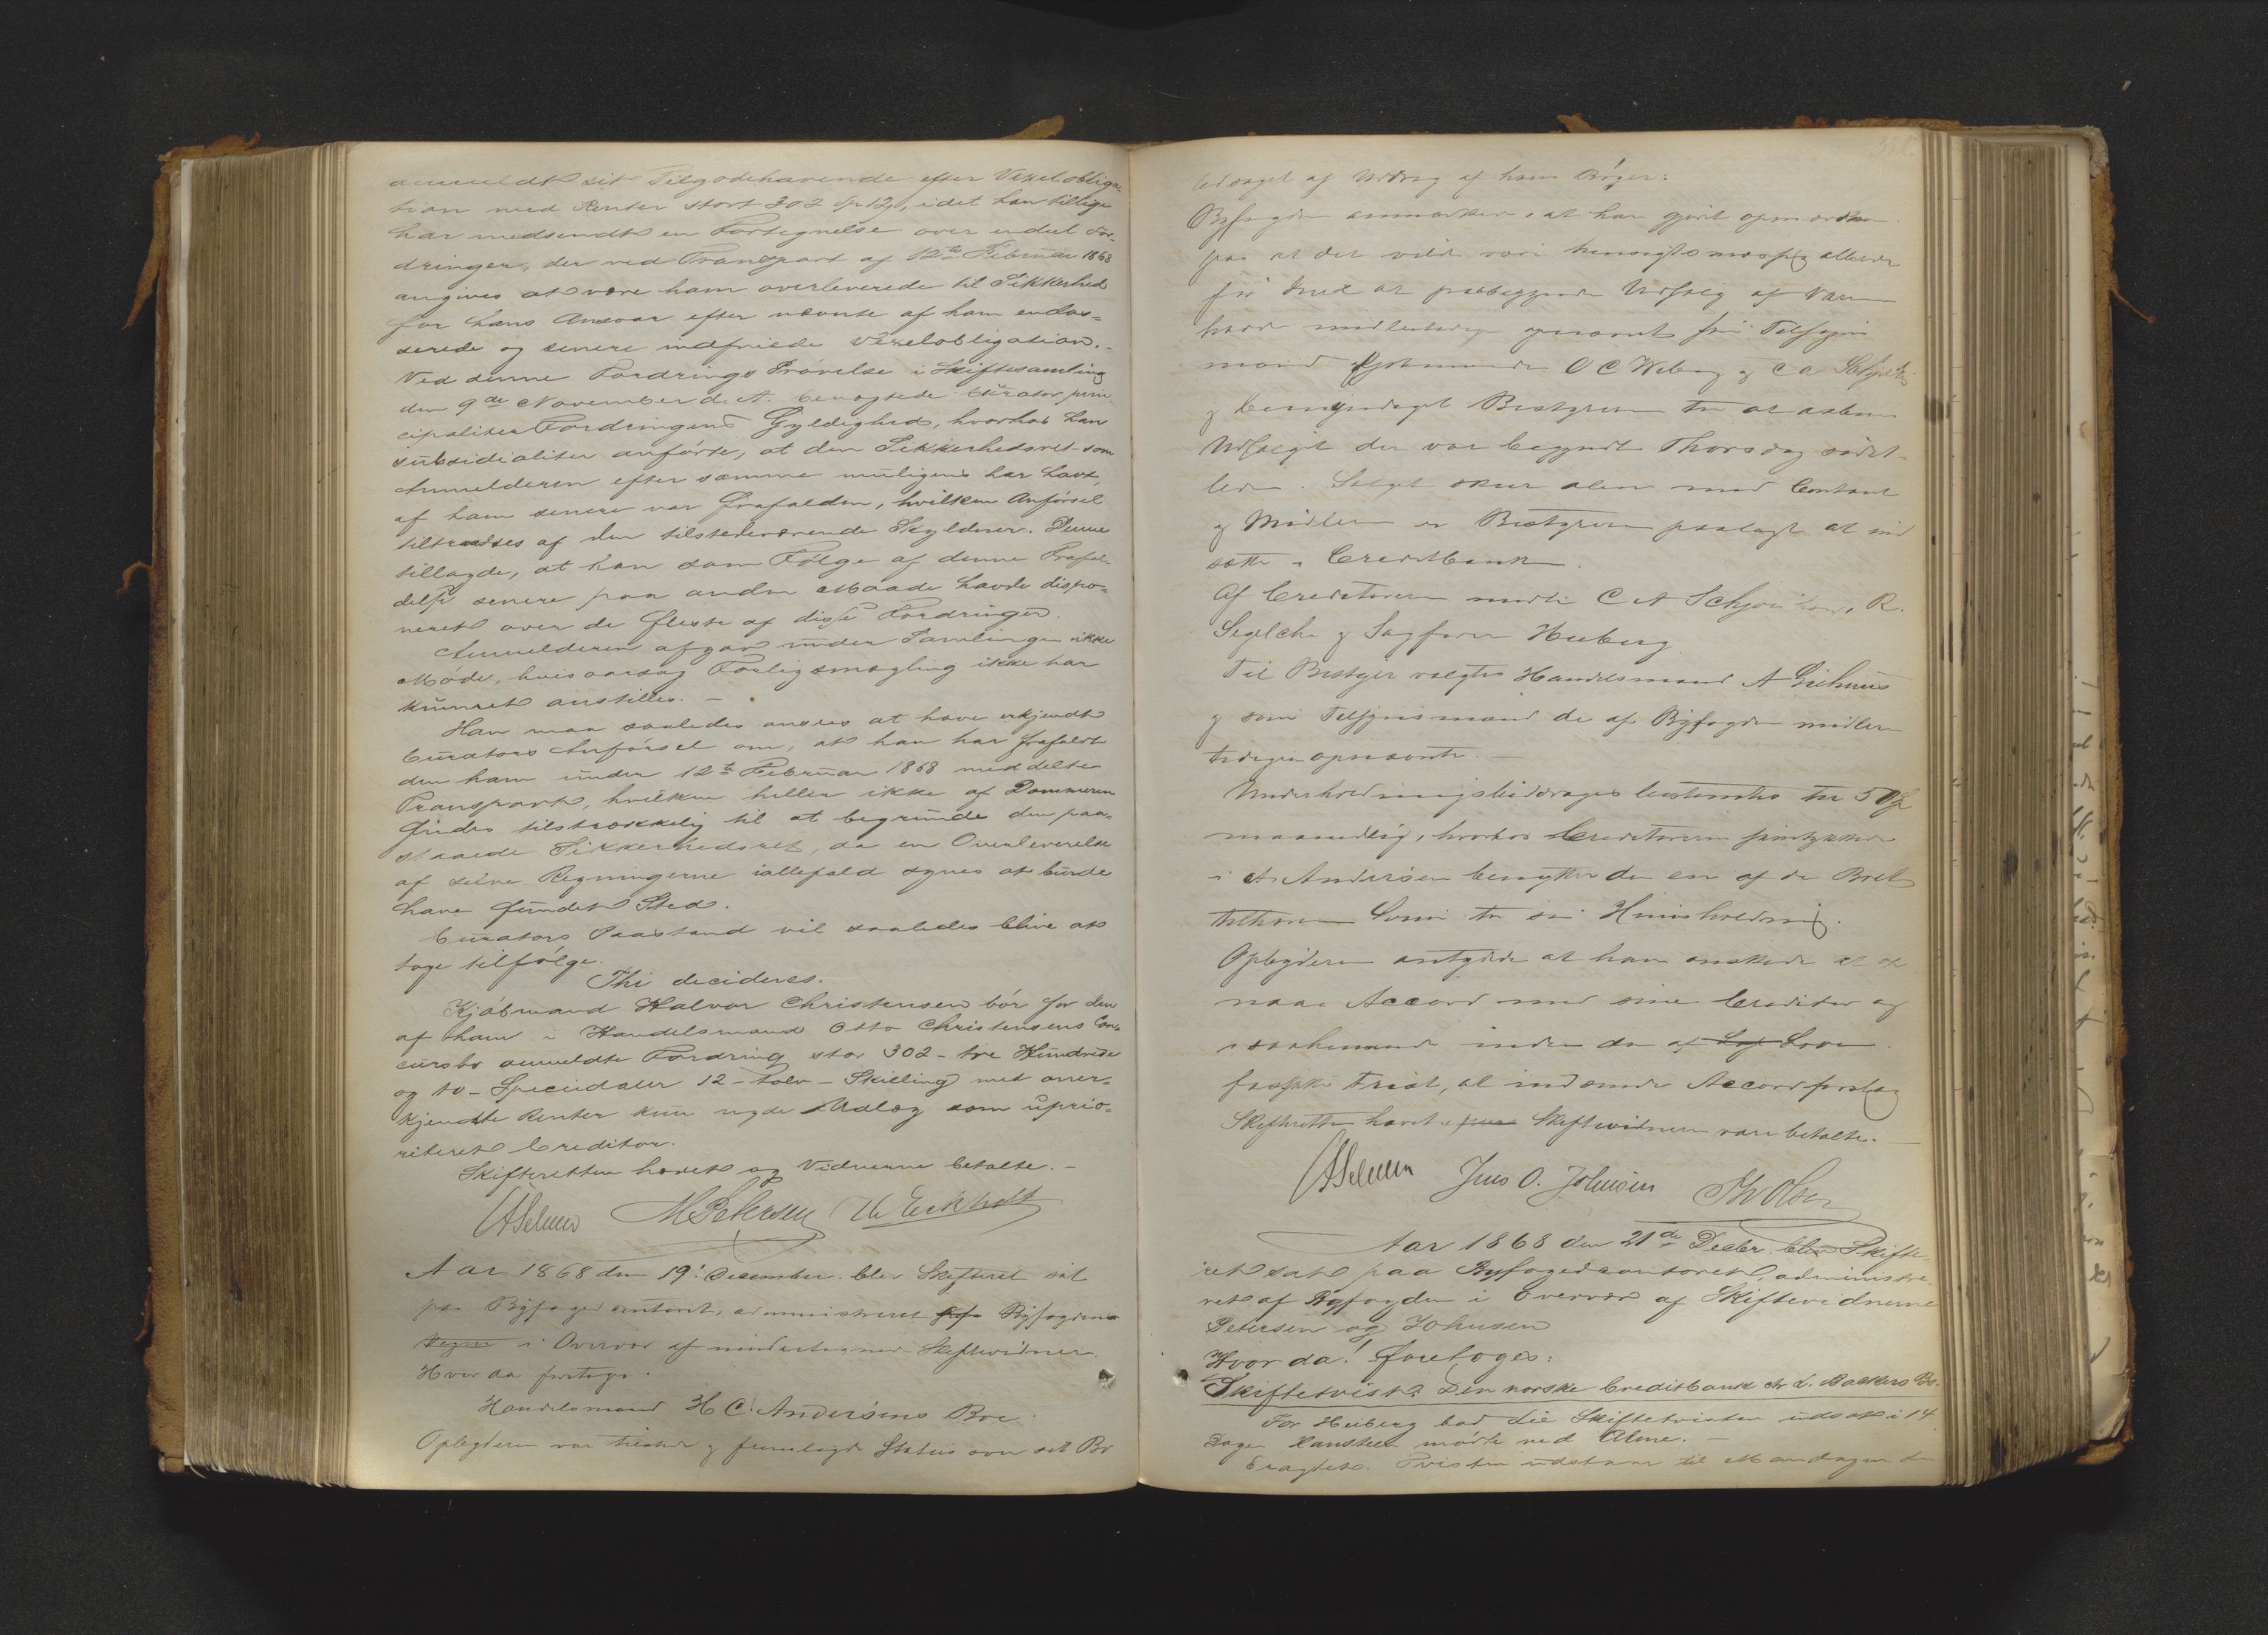 anmeldt sit Tilgodehavende efter Vexelobliga-
tion med Renter stort 302 Sp 12 s, idet han tillige
har medsendt en Fortegnelse over endeel For-
dringer, der ved Transport af 12te Februar 1868
angives at være ham overleverede til Sikkerhed
for hans Ansvar efter nævnte af ham endos-
serede og senere indfriede Vexelobligation.-
Ved denne Fordrings Prøvelse i Skiftesamling
den 9de November d. A. benægtede Curator prin-
cipaliter Fordringens Gyldighed, hvorhos han
subsidialiter anførte, at den Sikkerhedsret som
Anmelderen efter samme muligens har havt,
af ham senere var frafalden, hvilken Anførsel
tiltraadtes af den tilstedeværende Skyldner. Denne
tillagde, at han som Følge af denne Frafal-
delse senere paa anden Maade havde dispo-
neret over de fleste af disse Fordringer.
Anmelderen afgav under Samlingen ikke
Møde, hvisaarsag Forligsmægling ikke har
kunnet anstilles. -
Han maa saaledes ansees at have erkjendt
Curators Anførsel om, at han har frafaldt
den ham under 12te Februar 1868 meddelte
Transport, hvilken heller ikke af Dommeren
findes tilstrækkelig til at begrunde den paa-
staaede Sikkerhedsret, da en Overleverelse
af selve Regningerne iallefald synes at burde
have fundet Sted.
Curators Paastand vil saaledes blive at
tage tilfølge.
Thi decideres.
Kjøbmand Halvor Christensen bør for den
af ham i Handelsmand Otto Christensens Con-
cursbo anmeldte Fordring stor 302 - tre Hundrede
og to - Speciedaler 12 - tolv - Skilling med aner-
kjendte Renter kun nyde Udlæg som uprio-
riteret Creditor.
Skifteretten hævet og Vidnerne betalte. -
M Petersen
Aar 1868 den 19. December blev Skifteret sat
paa Byfogedcontoret, administreret Byfogdens
Vegne i Overvær af undertegnede Skiftevidner.
Hvor da foretoges.
Handelsmand H C. Andersens Boe.
Opbyderen var tilstede og fremlagde Status over sit Bo
ledsaget af Uddrag af hans Bøger.
Byfogden anmærker, at han gjort opmærksom
paa at det vilde være hensigtsmæssig allerede
før Juul at paabegynde Udsalg af Varer
havde midlertidigen opnævnt som Tilsyns
mænd Kjøbmændene O C Weberg og C A Schjøth
og bemyndiget Bestyreren til at aabne
Udsalget der var begyndt Thorsdag sidst-
leden. Salget skeer alene mod Contant
og Midlerne er Bestyreren paalagt at ind
sætte i Creditbanken.
Af Creditorerne mødte C A Schjøth, R.
Segelcke og Sagfører Heiberg.
Til Bestyrer valgtes Handelsmand A
og som Tilsynsmænd de af Byfogden midler
tidigen opnævnte. -
Underholdningsbidraget bestemtes til 50 Sp
maanedlig, hvorhos Creditorerne samtykkede
i at Andersen benytter den en af de Boet
tilhørende til sin Huusholdning.
Opbyderen antydede at han ønskede at op
naae Accord med sine Creditor og
inden den af Lag Loven
fastsatte Frist, at indsende Accordforslag
Skifteretten hævet. Skiftevidnerne vare betalte. -
Jens O. Johnsen Th Olsen
Aar 1868 den 21de Decbr. blev Skifte-
ret sat paa Byfogedcontoret, administre-
ret af Byfogden i Overvær af Skiftevidnerne
Petersen og Johnsen
Hvor da! foretoges:
Skiftetvist: Den norske Creditbank ctr L. Backers Bo.
For Heiberg bad Lie Skiftetvisten udsat i 14
Dage. Hansteen mødte ved Alme. -
Eragtet. Tvisten udstaar til Mandagen d